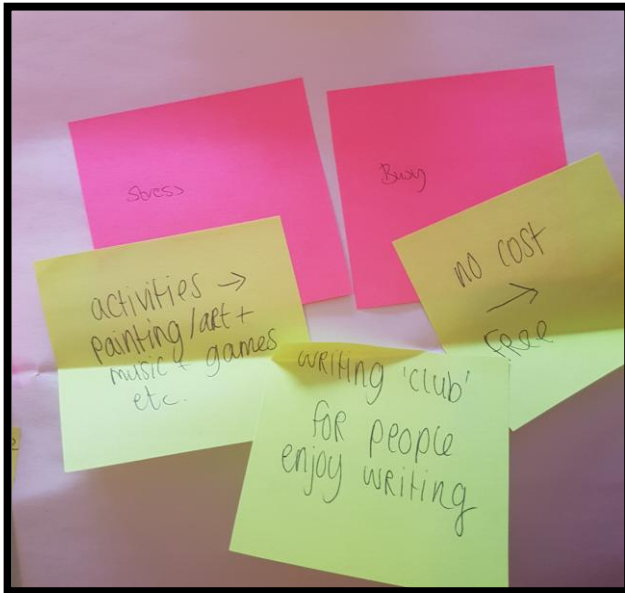 Stress
Busy
activities →
painting/art +
music + games
etc.
no cost
→
FREE
WRITING 'club'
FOR people
enjoy WRITING